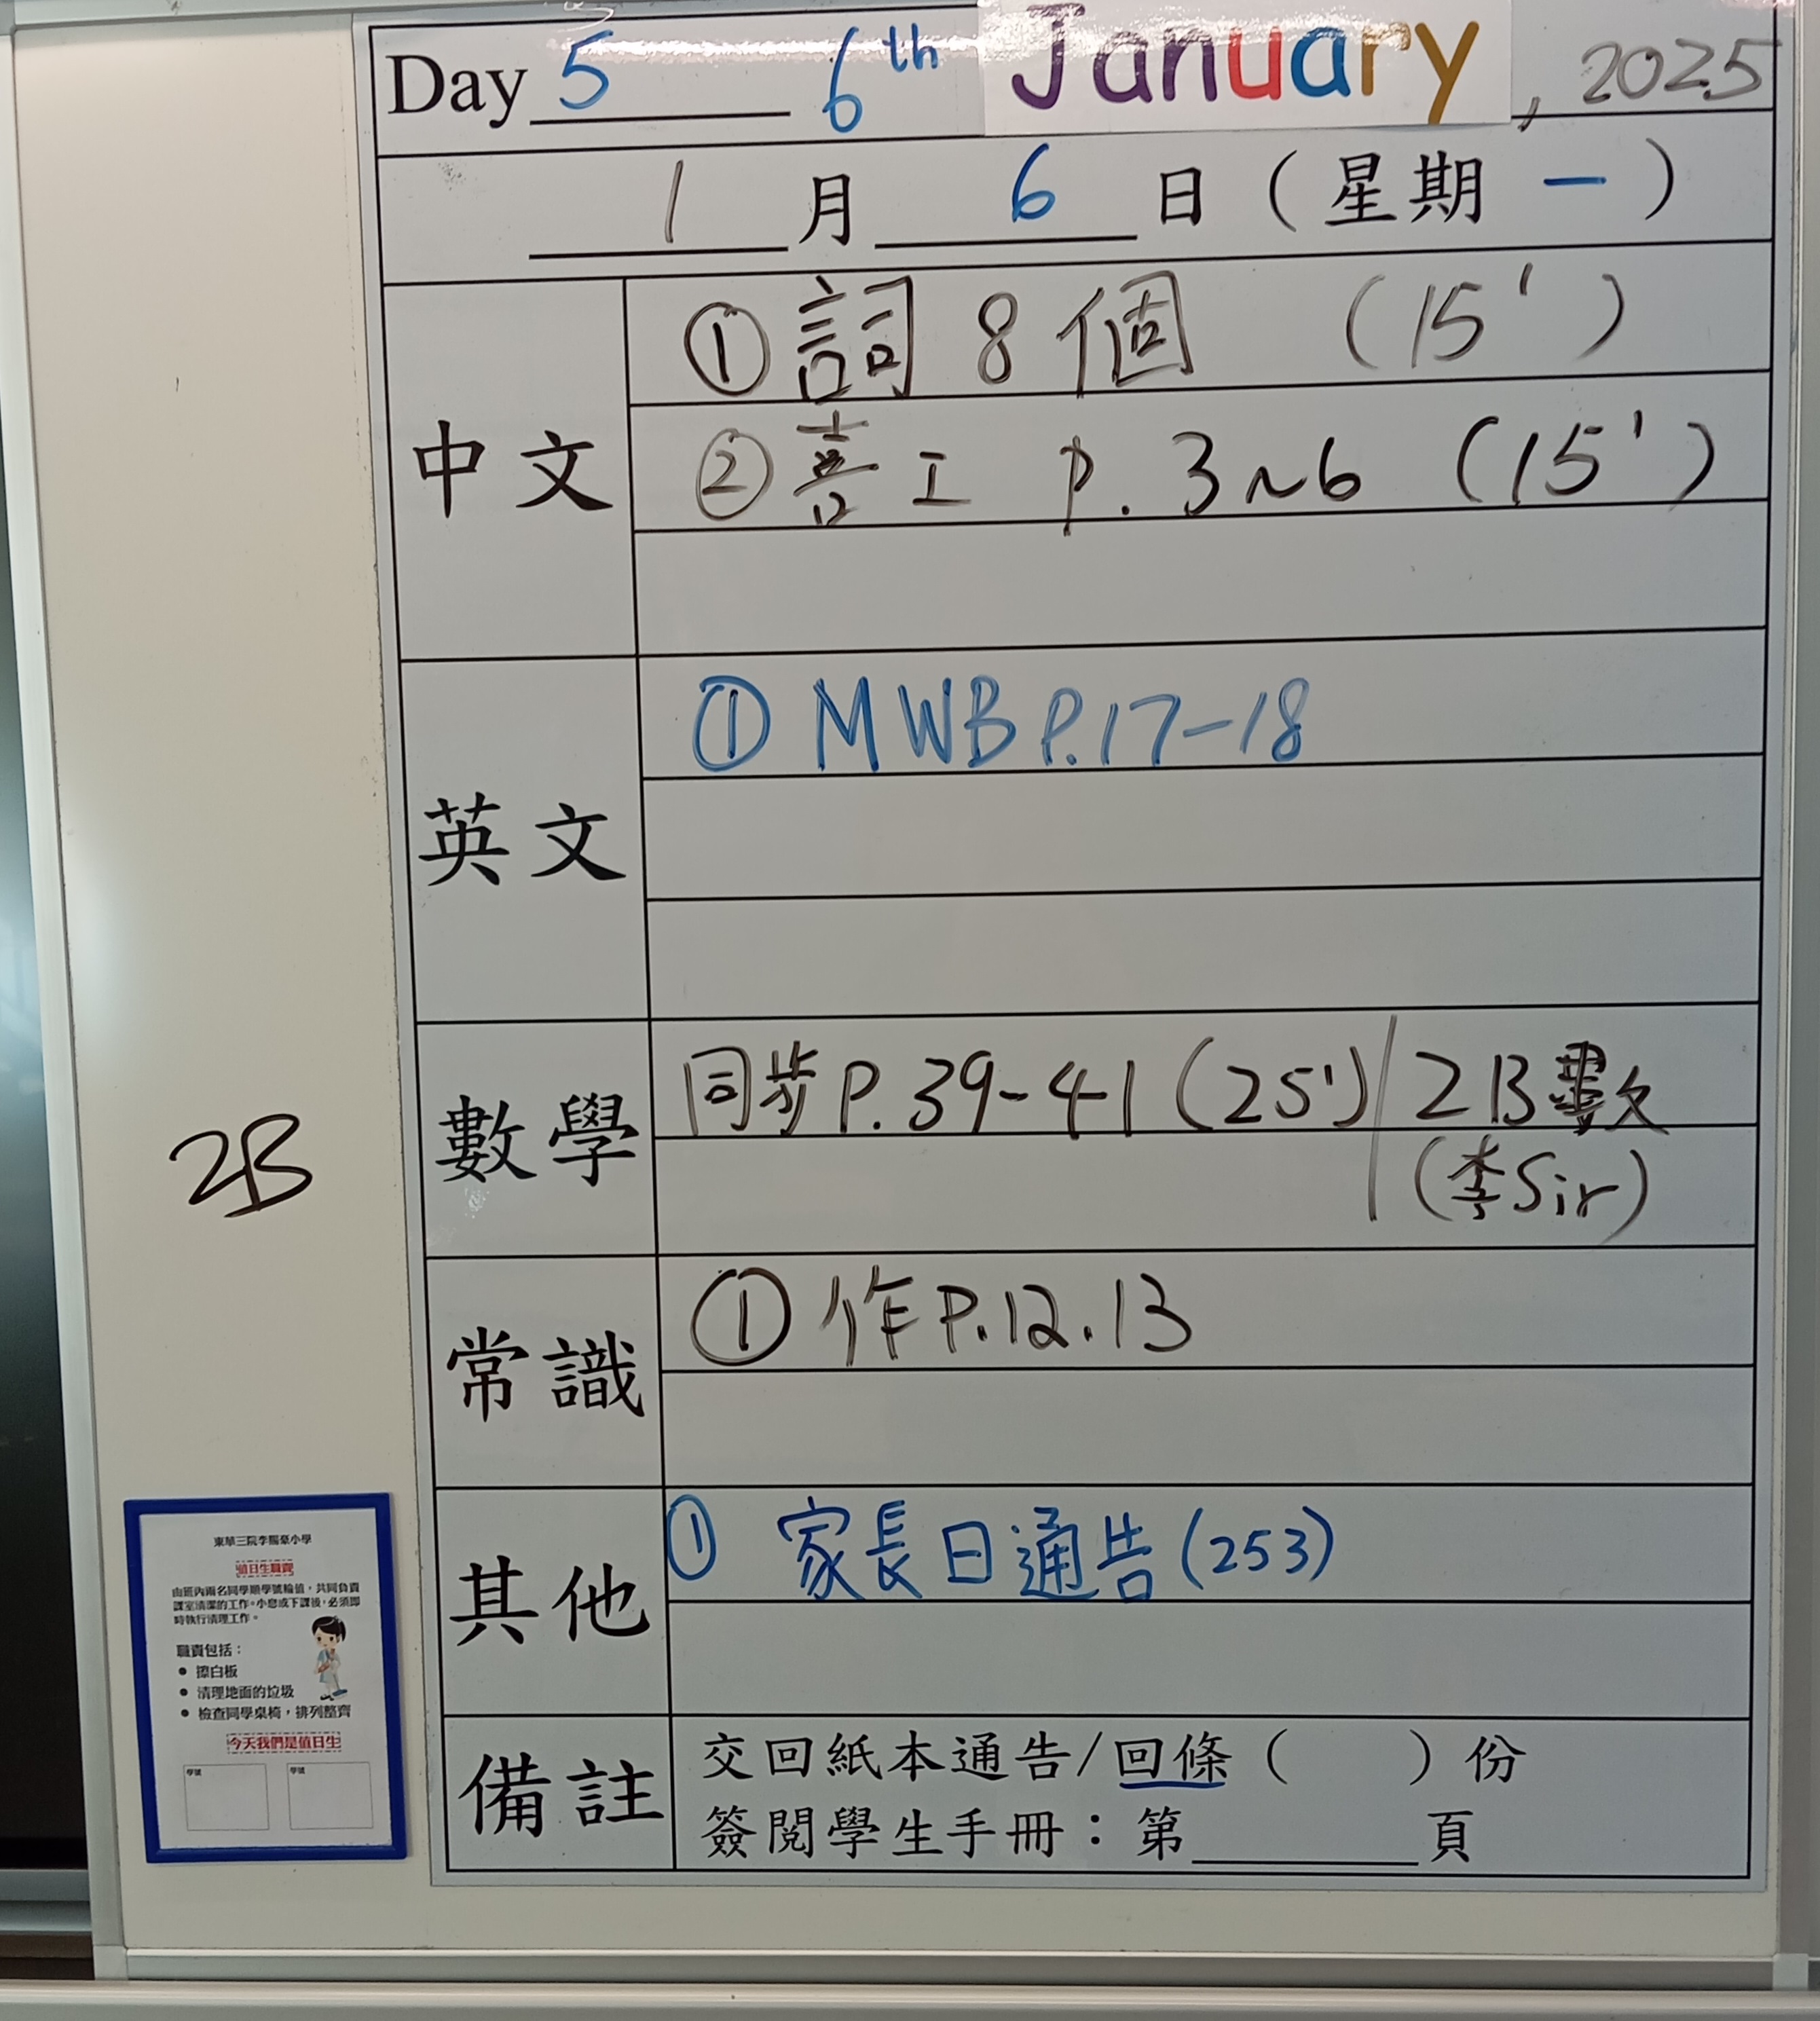 Day 5 6th January, 2025
1 月 6 日（星期 一）
中文
① 詞 8 個 (15')
② 喜工 p. 3~6 (15')
英文
① MWB P.17-18
數學
同步P.39-41 (25') / 2B數
(李Sir)
2B
常識
① 作P.12.13
其他
① 家長日通告(253)
備註
交回紙本通告/回條（ ）份
簽閱學生手冊：第 頁
東華三院李賜豪小學
值日生職責
由班內兩名同學順學號輪值，共同負責
課室清潔的工作。小息或下課後，必須即
時執行清理工作。
職責包括：
• 擦白板
• 清理地面的垃圾
• 檢查同學桌椅，排列整齊
今天我們是值日生
學號 學號